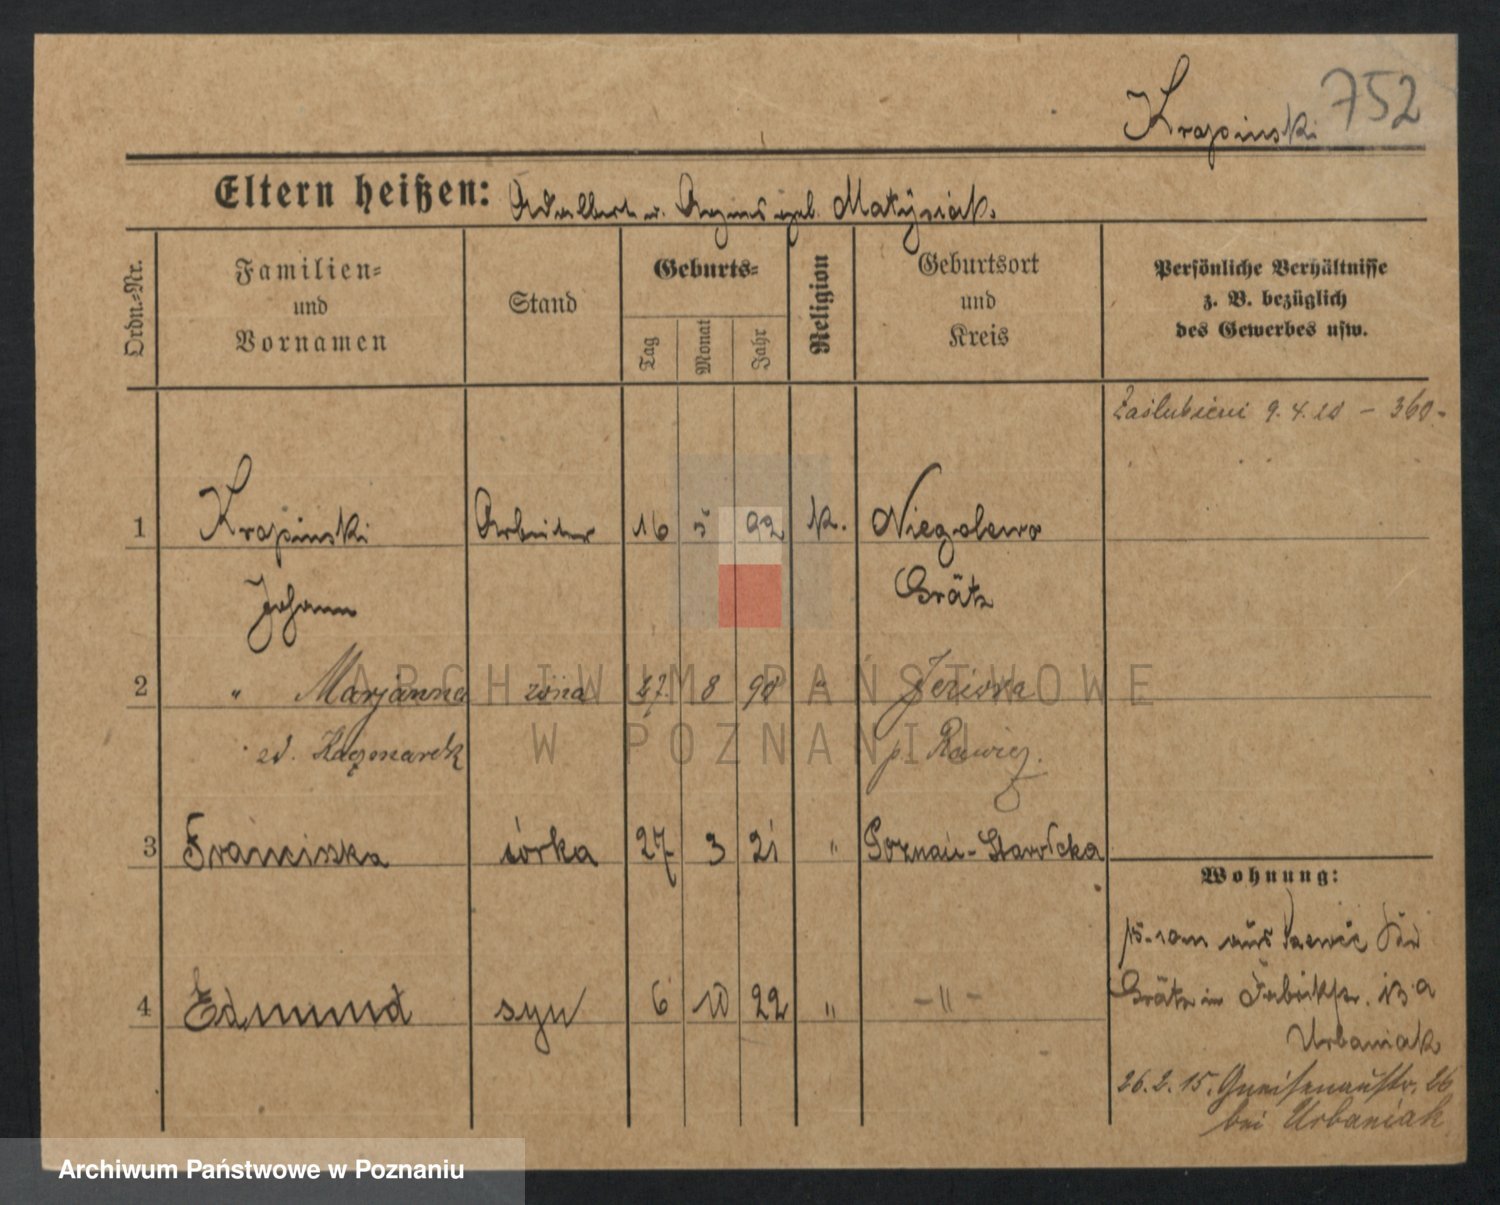 Krajsinski 752
Eltern heißen: Adalbert u. Agnes geb. Matysiak.
Ordn.-Nr.
Familien-
und
Vornamen
Stand
Geburts-
Tag
Monat
Jahr
Religion
Geburtsort
und
Kreis
Persönliche Verhältnisse
z. B. bezüglich
des Gewerbes usw.
9.4.20 – 360.-
1 Arbeiter 16 5 92 k. Niegolewo
Johann Grätz
2 " Marjanna żona 27. 8 98 "
Kaczmarek p. Rawicz.
3 Franciszka córka 27 3 21 " Poznań-Starołęka
4 Edmund syn 6 10 22 " -"-
Wohnung:
aus
Grätz in 13a
Urbaniak
26.2.15. Gneisenaustr. 26
bei Urbaniak
ARCHIWUM PAŃSTWOWE
W POZNANIU
Archiwum Państwowe w Poznaniu